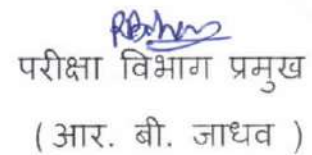 परीक्षा विभाग प्रमुख
( आर. बी. जाधव )